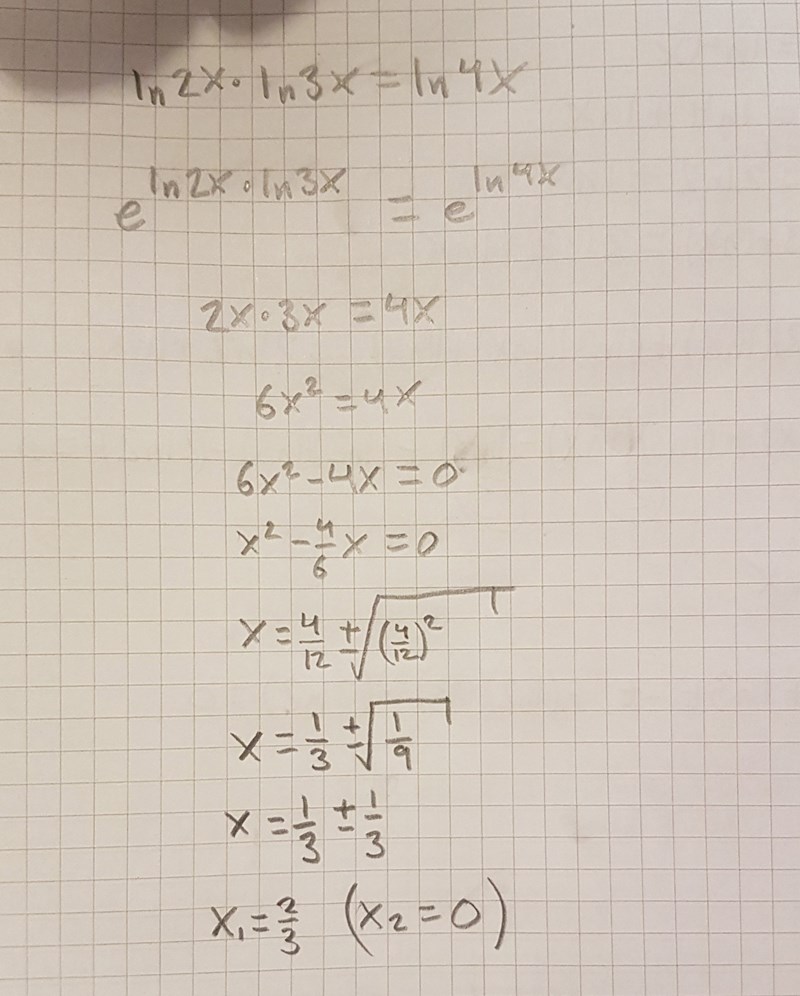 ln2x·ln3x=ln4x
e^(ln2x·ln3x) = e^(ln4x)
2x·3x=4x
6x²=4x
6x²-4x=0
x²-4/6x=0
x=4/12±√(4/12)²
x=1/3±√1/9
x=1/3±1/3
x₁=2/3 (x₂=0)